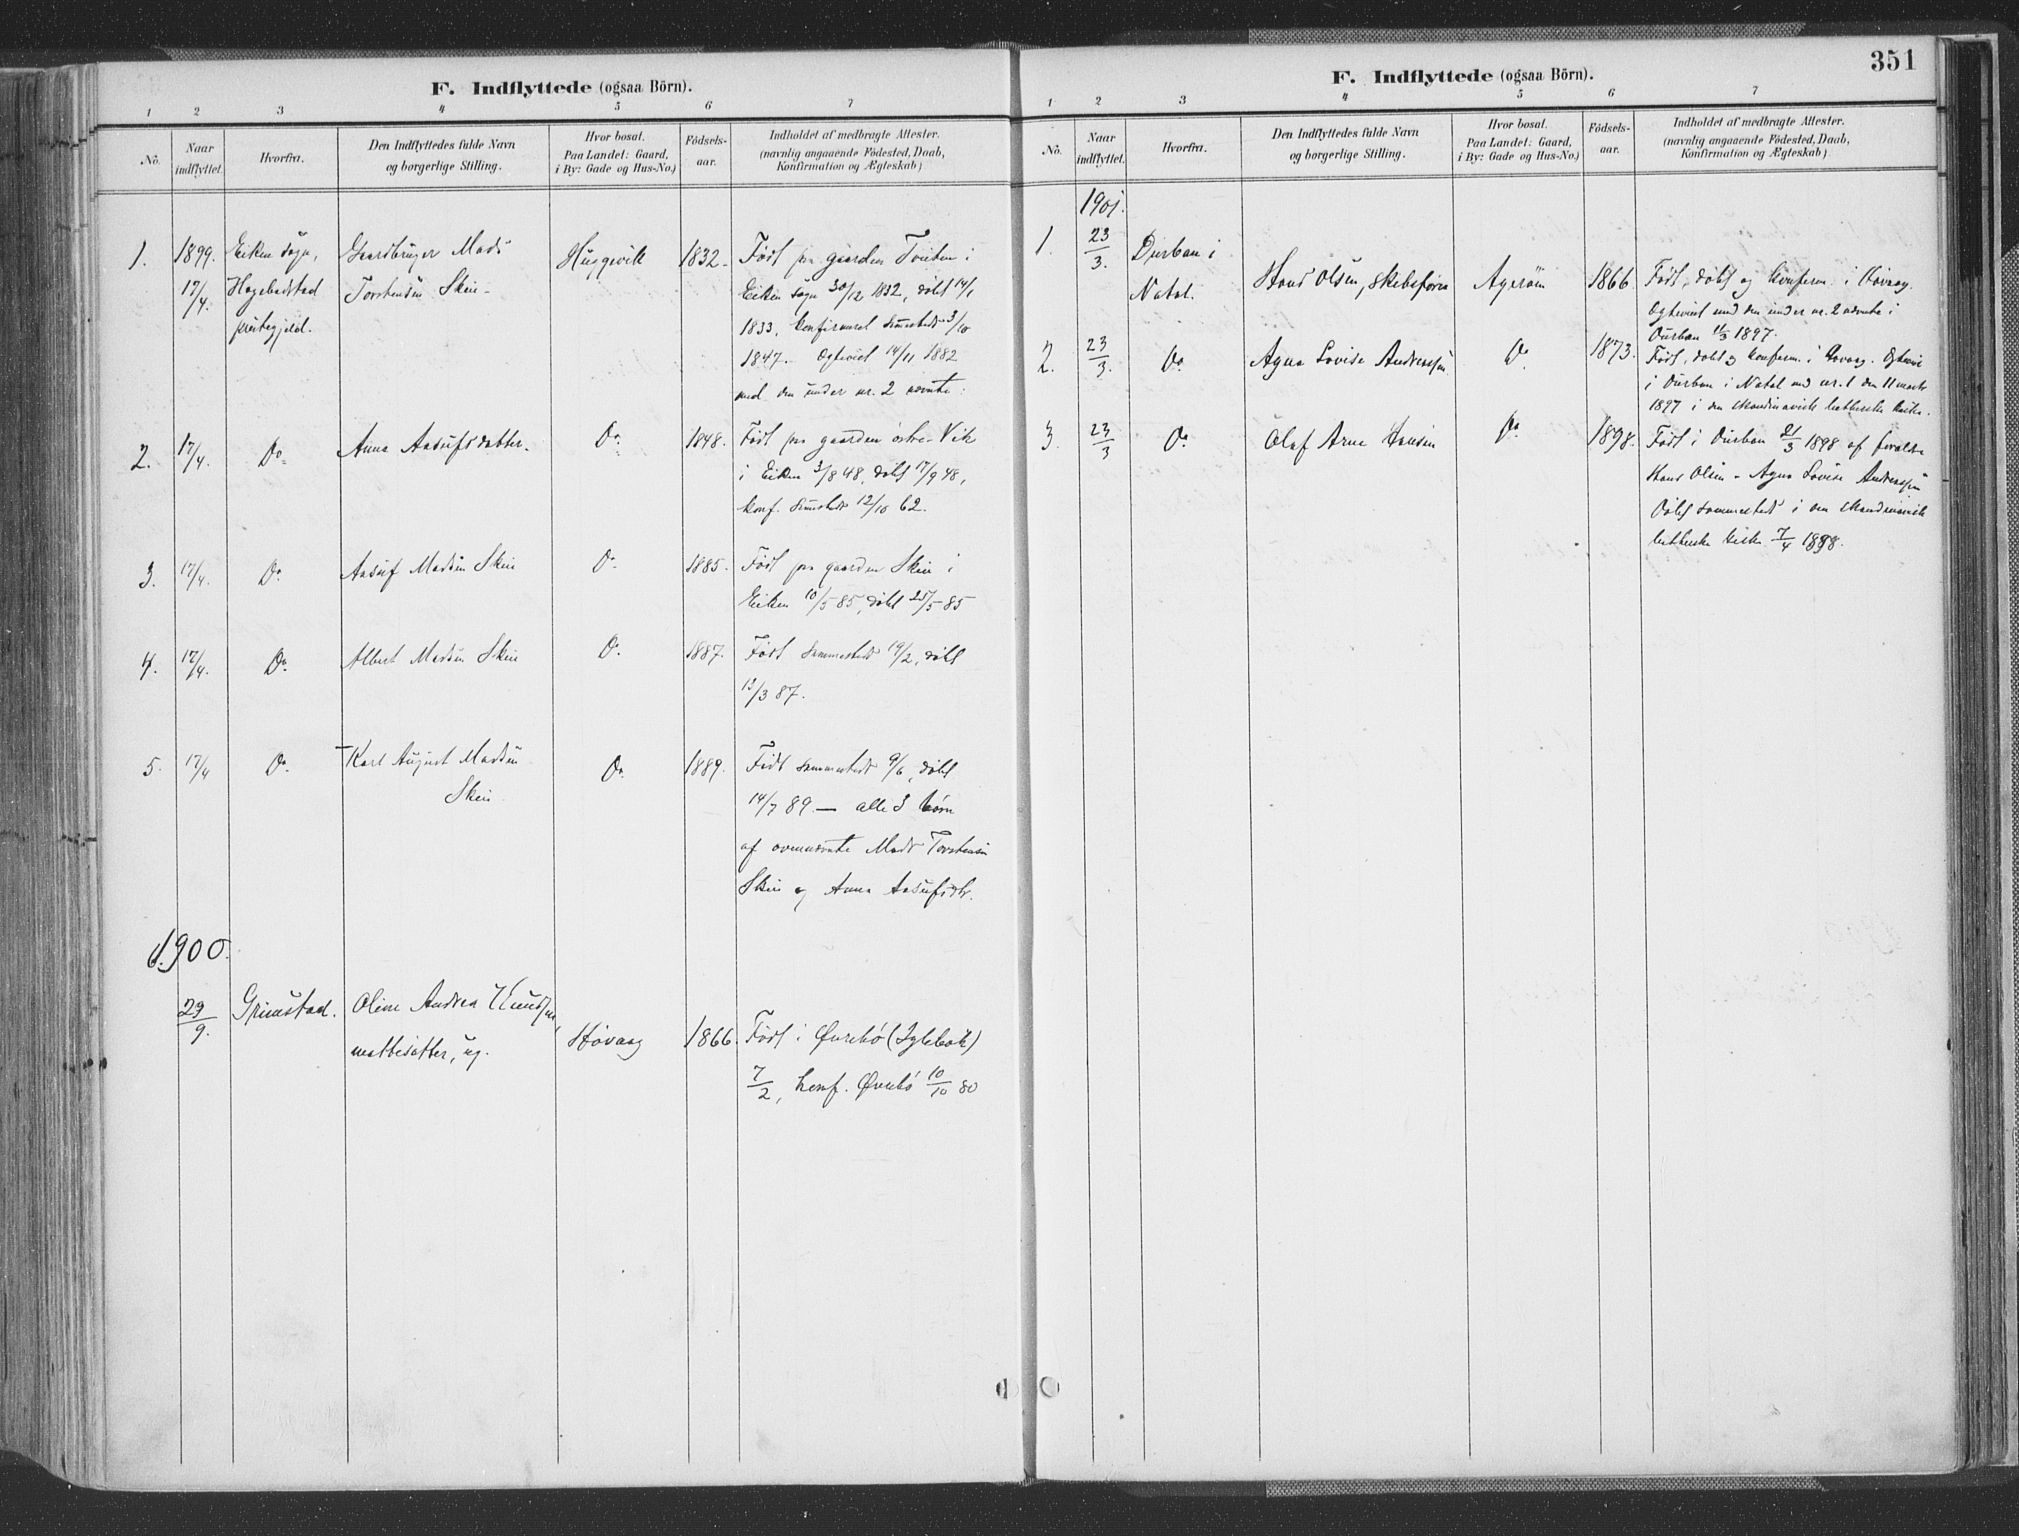 F. Indflyttede (ogsaa Börn).
1 2 3 4 5 6 7
No.
Naar indflyttet.
Hvorfra.
Den Indflyttedes fulde Navn
og borgerlige Stilling.
Hvor bosat.
Paa Landet: Gaard,
i By: Gade og Hus-No.)
Födsels-
aar.
Indholdet af medbragte Attester.
(navnlig angaaende Födested, Daab,
Konfirmation og Ægteskab)
1. 1899. Eiken sogn, Gaardbruger Mads 1832. Født paa gaarden Tveiten i
17/4. Hægebostad Torstensen Skeie Eiken sogn 30/12 1832, døbt 14/1
præstegjeld. 1833, konfirmeret 3/10
1847. Egteviet 14/11 1882
med den under nr. 2 nævnte.
2. 17/4. Do. Anna Aasufsdatter. Do. 1848. Født paa gaarden østre Vik
i Eiken 3/8 48, døbt 17/9 48,
konf. 12/10 62.
3. 17/4. Do. Aasuf Madsen Skeie Do. 1885. Født paa gaarden Skeie i
Eiken 10/5 85, døbt 25/5 85
4. 17/4. Do. Albert Madsen Skeie Do. 1887. Født sammesteds 19/2, døbt
13/3 87.
5. 17/4 Do. Karl August Madsen Do. 1889. Født sammesteds 9/6, døbt
Skeie 14/7 89 — alle 3 børn
af ovennævnte Mads Torstensen
Skeie og Anna Aasufsdtr.
1900.
23/9. Grimstad. Oline Andrea Knudsen,
ug. Høvaag 1866. Født i Øvrebø
7/2, konf. Øvrebø 10/10 80
F. Indflyttede (ogsaa Börn).
351
1 2 3 4 5 6 7
No.
Naar indflyttet.
Hvorfra.
Den Indflyttedes fulde Navn
og borgerlige Stilling.
Hvor bosat.
Paa Landet: Gaard,
i By: Gade og Hus-No.)
Födsels-
aar.
Indholdet af medbragte Attester.
(navnlig angaaende Födested, Daab,
Konfirmation og Ægteskab)
1901.
1. 23/3. Durban i
Natal. Hans Olsen, Skibsfører Agerøen 1866. Født, døbt og konferm. i Høvaag.
Egteviet med den under nr. 2 nævnte i
Durban 11/3 1897.
2. 23/3. Do. Agna Lovise Andreassen Do. 1873. Født, døbt og konferm. i Høvaag. Egteviet
i Durban i Natal med nr. 1 den 11 marts
1897 i den skandinavisk lutherske kirke.
3. 23/3 Do. Olaf Arne Hansen Do. 1898. Født i Durban 21/3 1898 af forældre
Hans Olsen - Agna Lovise Andreassen
Døbt sammesteds i den skandinavisk
lutherske kirke 7/4 1898.